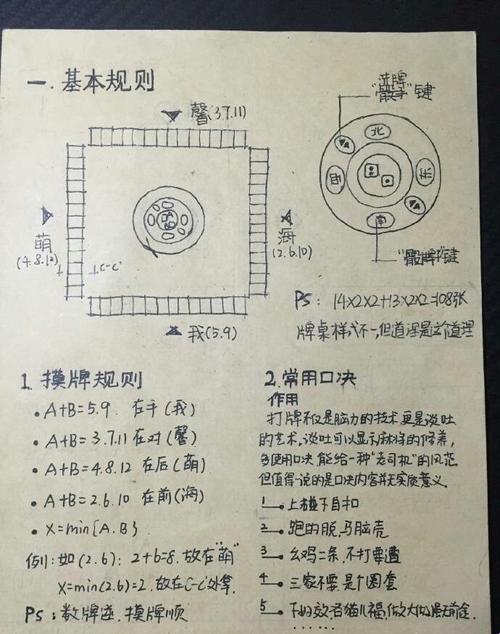 一.基本规则
洗牌
"骰子"键
馨(3.7.11)
北
西
东
南
萌
(4.8.12)
C-C'
海
(2.6.10)
"骰牌"键
我(5.9)
PS: 14X2X2+13X2X2=108张
牌桌样式不一,但道理是这个道理
1.摸牌规则
• A+B=5.9 在于(我)
• A+B=3.7.11 在对(馨)
• A+B=4.8.12 在后(萌)
• A+B=2.6.10 在前(海)
• X=min{A.B}
例:如(2.6): 2+6=8.放在"萌"
X=min(2.6)=2.放在C-C'处拿.
PS: 数牌逆.摸牌顺
2.常用口决
作用
打牌不仅是脑力的技术更是谈吐
的艺术,谈吐可以显示你样的修养,
多使用口决,能给一种"老司机"的风范
但值得一说的是口决内容并无实质意义.
1.上碰下自扣
2.跑的脱,马脑壳
3.幺鸡二条,不打要遭
4.三家不要,是个圈套
5.